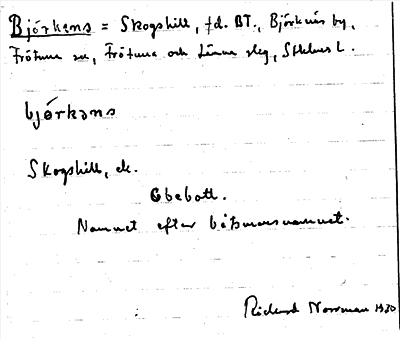 Björkens = Skogshill, fd. BT., Björknäs by,
Frötuna sn, Frötuna och Länna slg, Sthlms l.
bjö́rkəns
Skogshill, ek.
Obebott.
Namnet efter båtsmansnamnet.
Rickard Norrman 1930